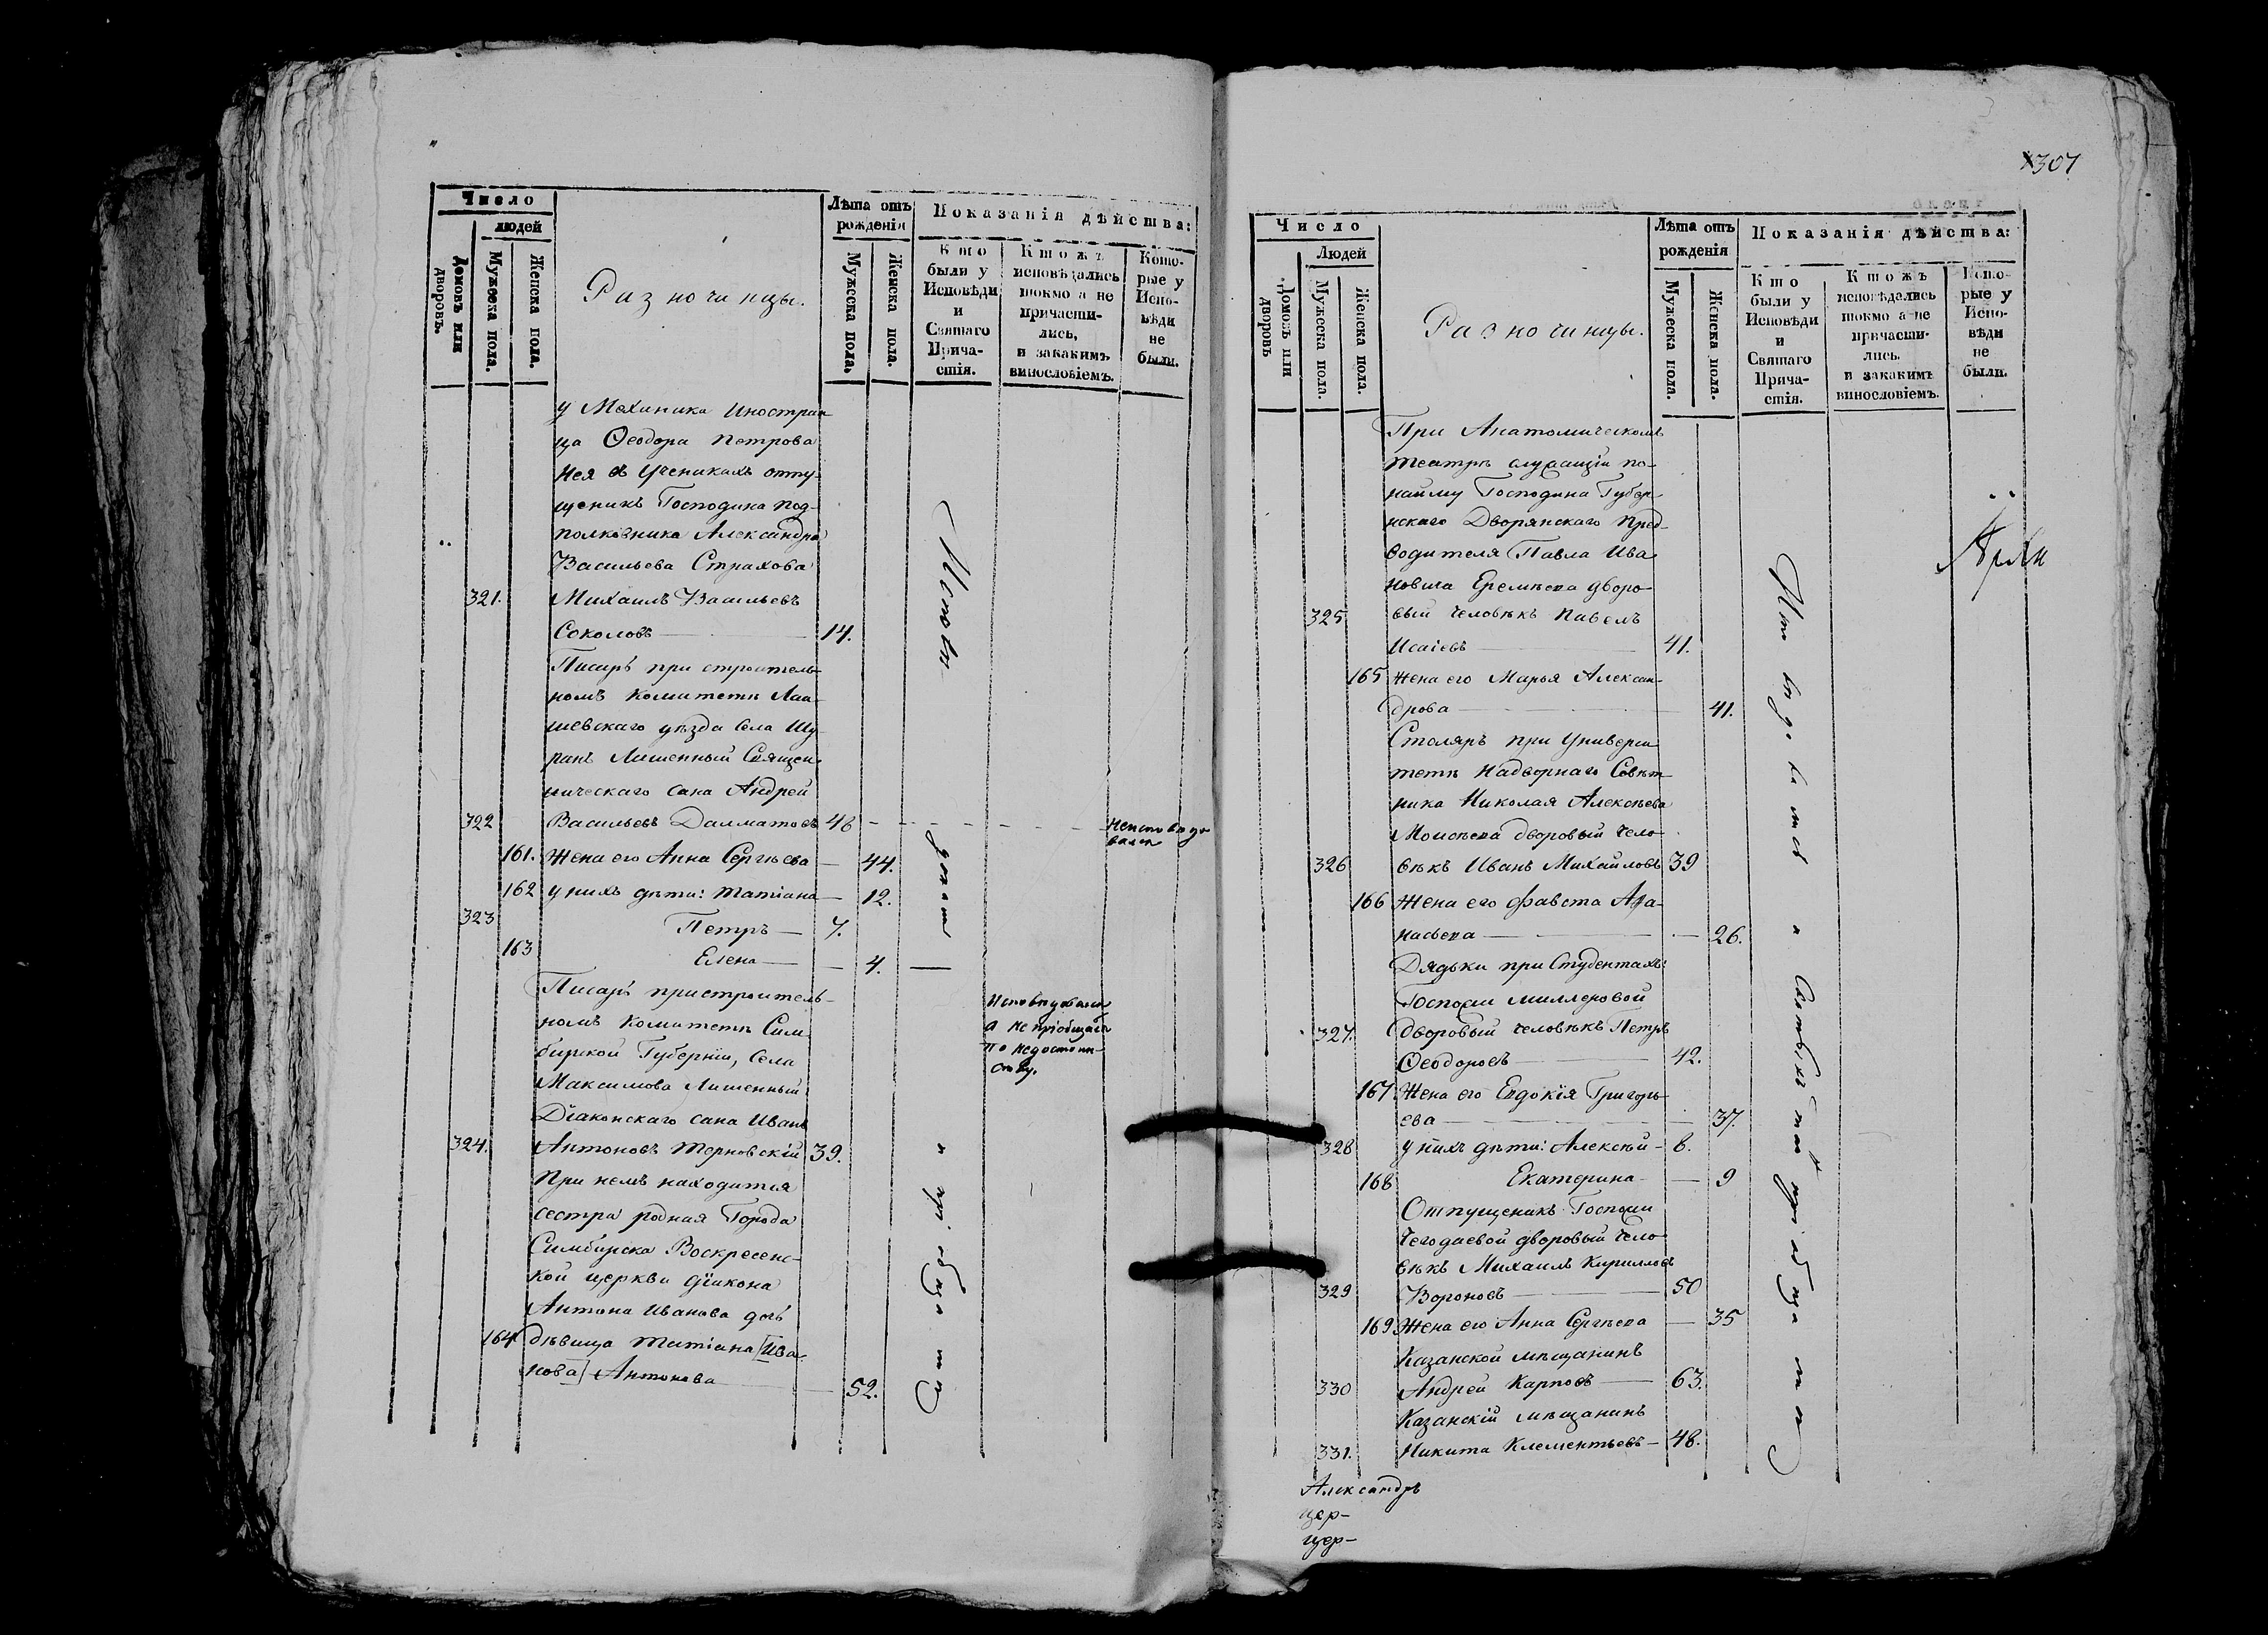 Число
людей
Домовъ или дворовъ.
Мужеска пола.
Женска пола.
Разночинцы.
Лѣта отъ рожденія
Мужеска пола.
Женска пола.
Показанія дѣйства:
Кто были у Исповѣди и Святаго Прича- стія.
Ктожъ исповѣдались токмо а не причасти- лись, и закакимъ винословіемъ.
Кото- рые у Испо- вѣди не были.
у Механика Иностран
ца Ѳеодора Петрова
Нея въ Ученикахъ отпу-
щеникъ Господина под-
полковника Александра
Васильева Страхова
321. Михаилъ Васильевъ
Соколовъ — 14.
Писарь при строитель-
номъ Комитетѣ Лаи-
шевскаго уѣзда села Шу-
ранъ Лишенный Священ-
ническаго сана Андрей
322 Васильевъ Далматовъ 46 неисповѣдо
вался
161. Жена его Анна Сергѣева — 44.
162 у нихъ дѣти: Татіана — 12.
323 Петръ — 7.
163 Елена — 4.
Писарь пристроитель-
номъ Комитетѣ Сим
бирской Губерніи, Села
Максимова Лишенный
Діаконскаго сана Иванъ
324. Антоновъ Терновскій 39.
Исповѣдовался
а не пріобщался
по недостоин-
ству.
При немъ находится
сестра родная Города
Симбирска Воскресенс-
кой церкви діакона
Антона Иванова дочь
164 дѣвица Татіана [Ива
нова] Антонова — 52.
307
Число
Людей
Домовъ или дворовъ
Мужеска пола.
Женска пола.
Разночинцы.
Лѣта отъ рожденія
Мужеска пола.
Женска пола.
Показанія дѣйства:
Кто были у Исповѣди и Святаго Прича- стія.
Ктожъ исповѣдались токмо а не причасти- лись. и закакимъ винословіемъ.
Кото- рые у Испо- вѣди не были.
При Анатомическомъ
театрѣ служащіи по-
найму Господина Губер-
нскаго Дворянскаго Пред-
водителя Павла Ива
новича Еремѣева дворо-
325 вый человѣкъ Павелъ
Исаіевъ — 41.
165 Жена его Марья Алексан-
дрова — 41.
Столяръ при Универси
тетѣ Надворнаго Совѣт
ника Николая Алексѣева
Моисѣева дворовый чело
326 вѣкъ Иванъ Михайловъ 39
166 Жена его Фавста Афа-
насьева — 26.
Дядьки при Студентахъ:
Госпожи Миллеровой
327. дворовый человѣкъ Петръ
Ѳеодоровъ — 42.
167 Жена его Евдокія Григорь
ева — 37.
328 у нихъ дѣти: Алексѣй — 8.
168 Екатерина — 9
Отпущеникъ Госпожи
Чегодаевой дворовый чело
вѣкъ Михаилъ Кирилловъ
329 Вороновъ — 50
169 Жена его Анна Сергѣева — 35
Казанской мѣщанинъ
330 Андрей Карповъ — 63.
Казанскій мѣщанинъ
331. Никита Клементьевъ — 48.
Александръ
цер-
цер-